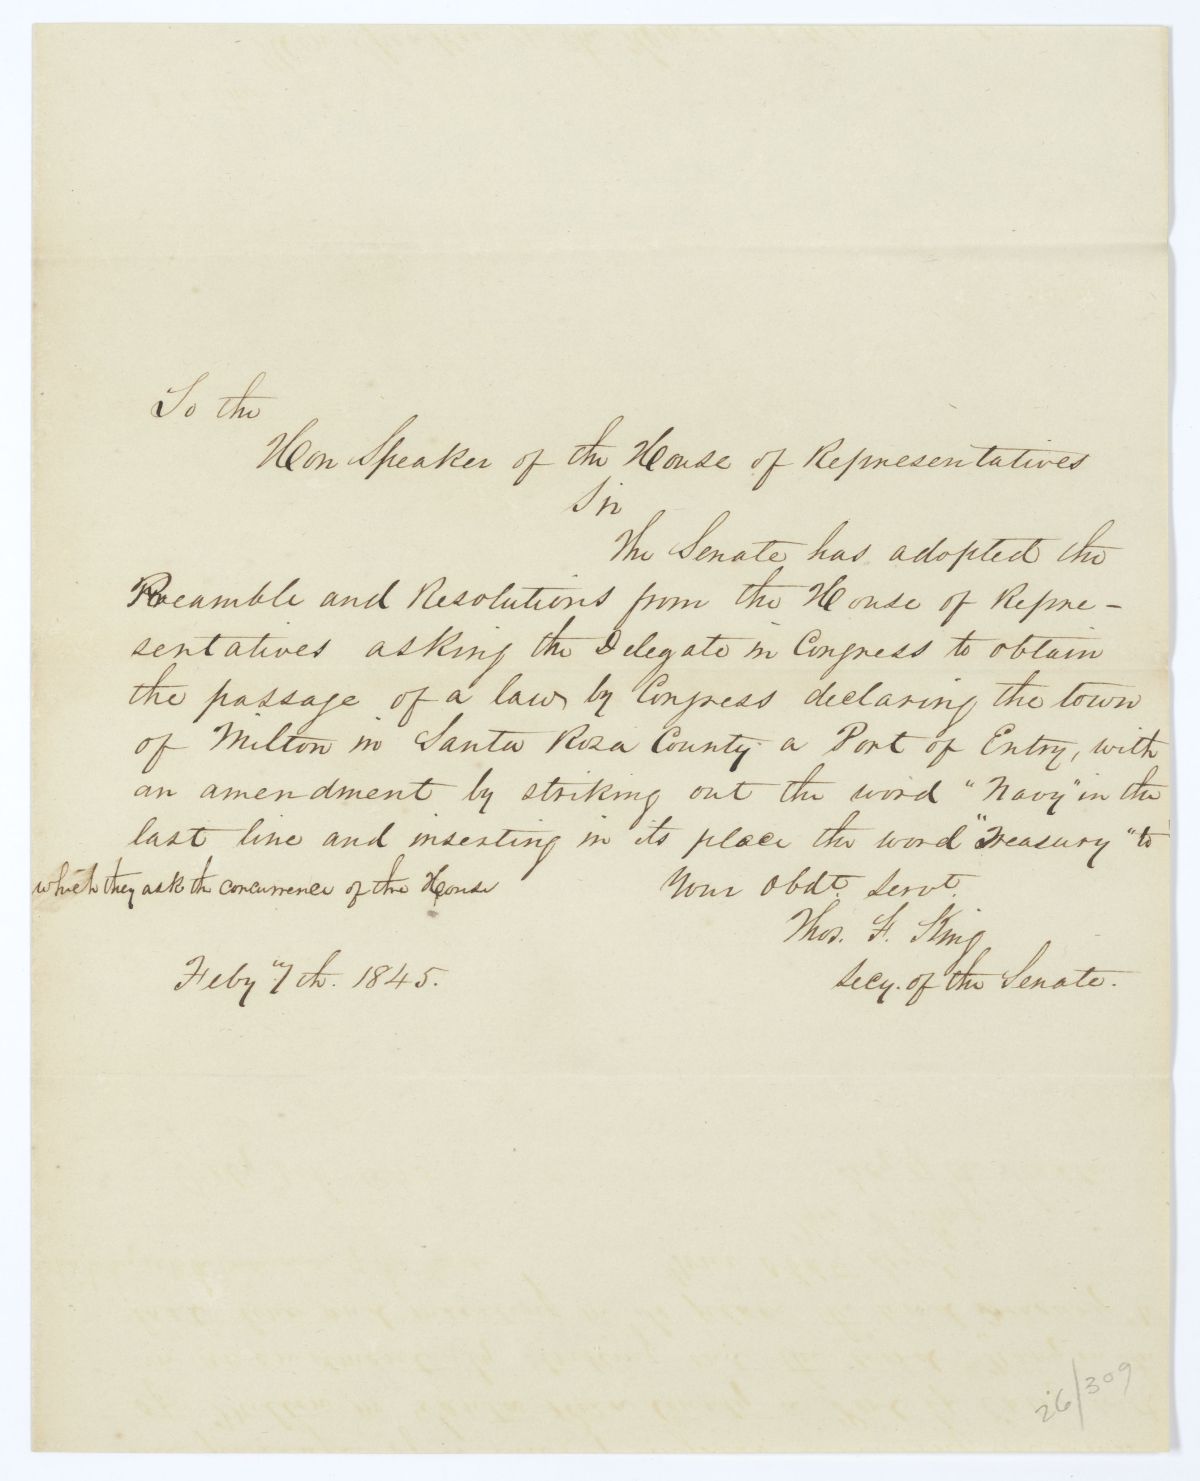 To the
Hon Speaker of the House of Representatives
Sir
The Senate has adopted the
Preamble and Resolutions from the House of Repre-
sentatives asking the Delegate in Congress to obtain
the passage of a law by Congress declaring the town
of Milton in Santa Roza County a Port of Entry, with
an amendment by striking out the word "Navy" in the
last line and inserting in its place the word "Treasury" to
which they ask the concurrence of the House
Your Obdt. Servt.
Thos. F. King
Secy. of the Senate.
Feby 7th. 1845.
26/309